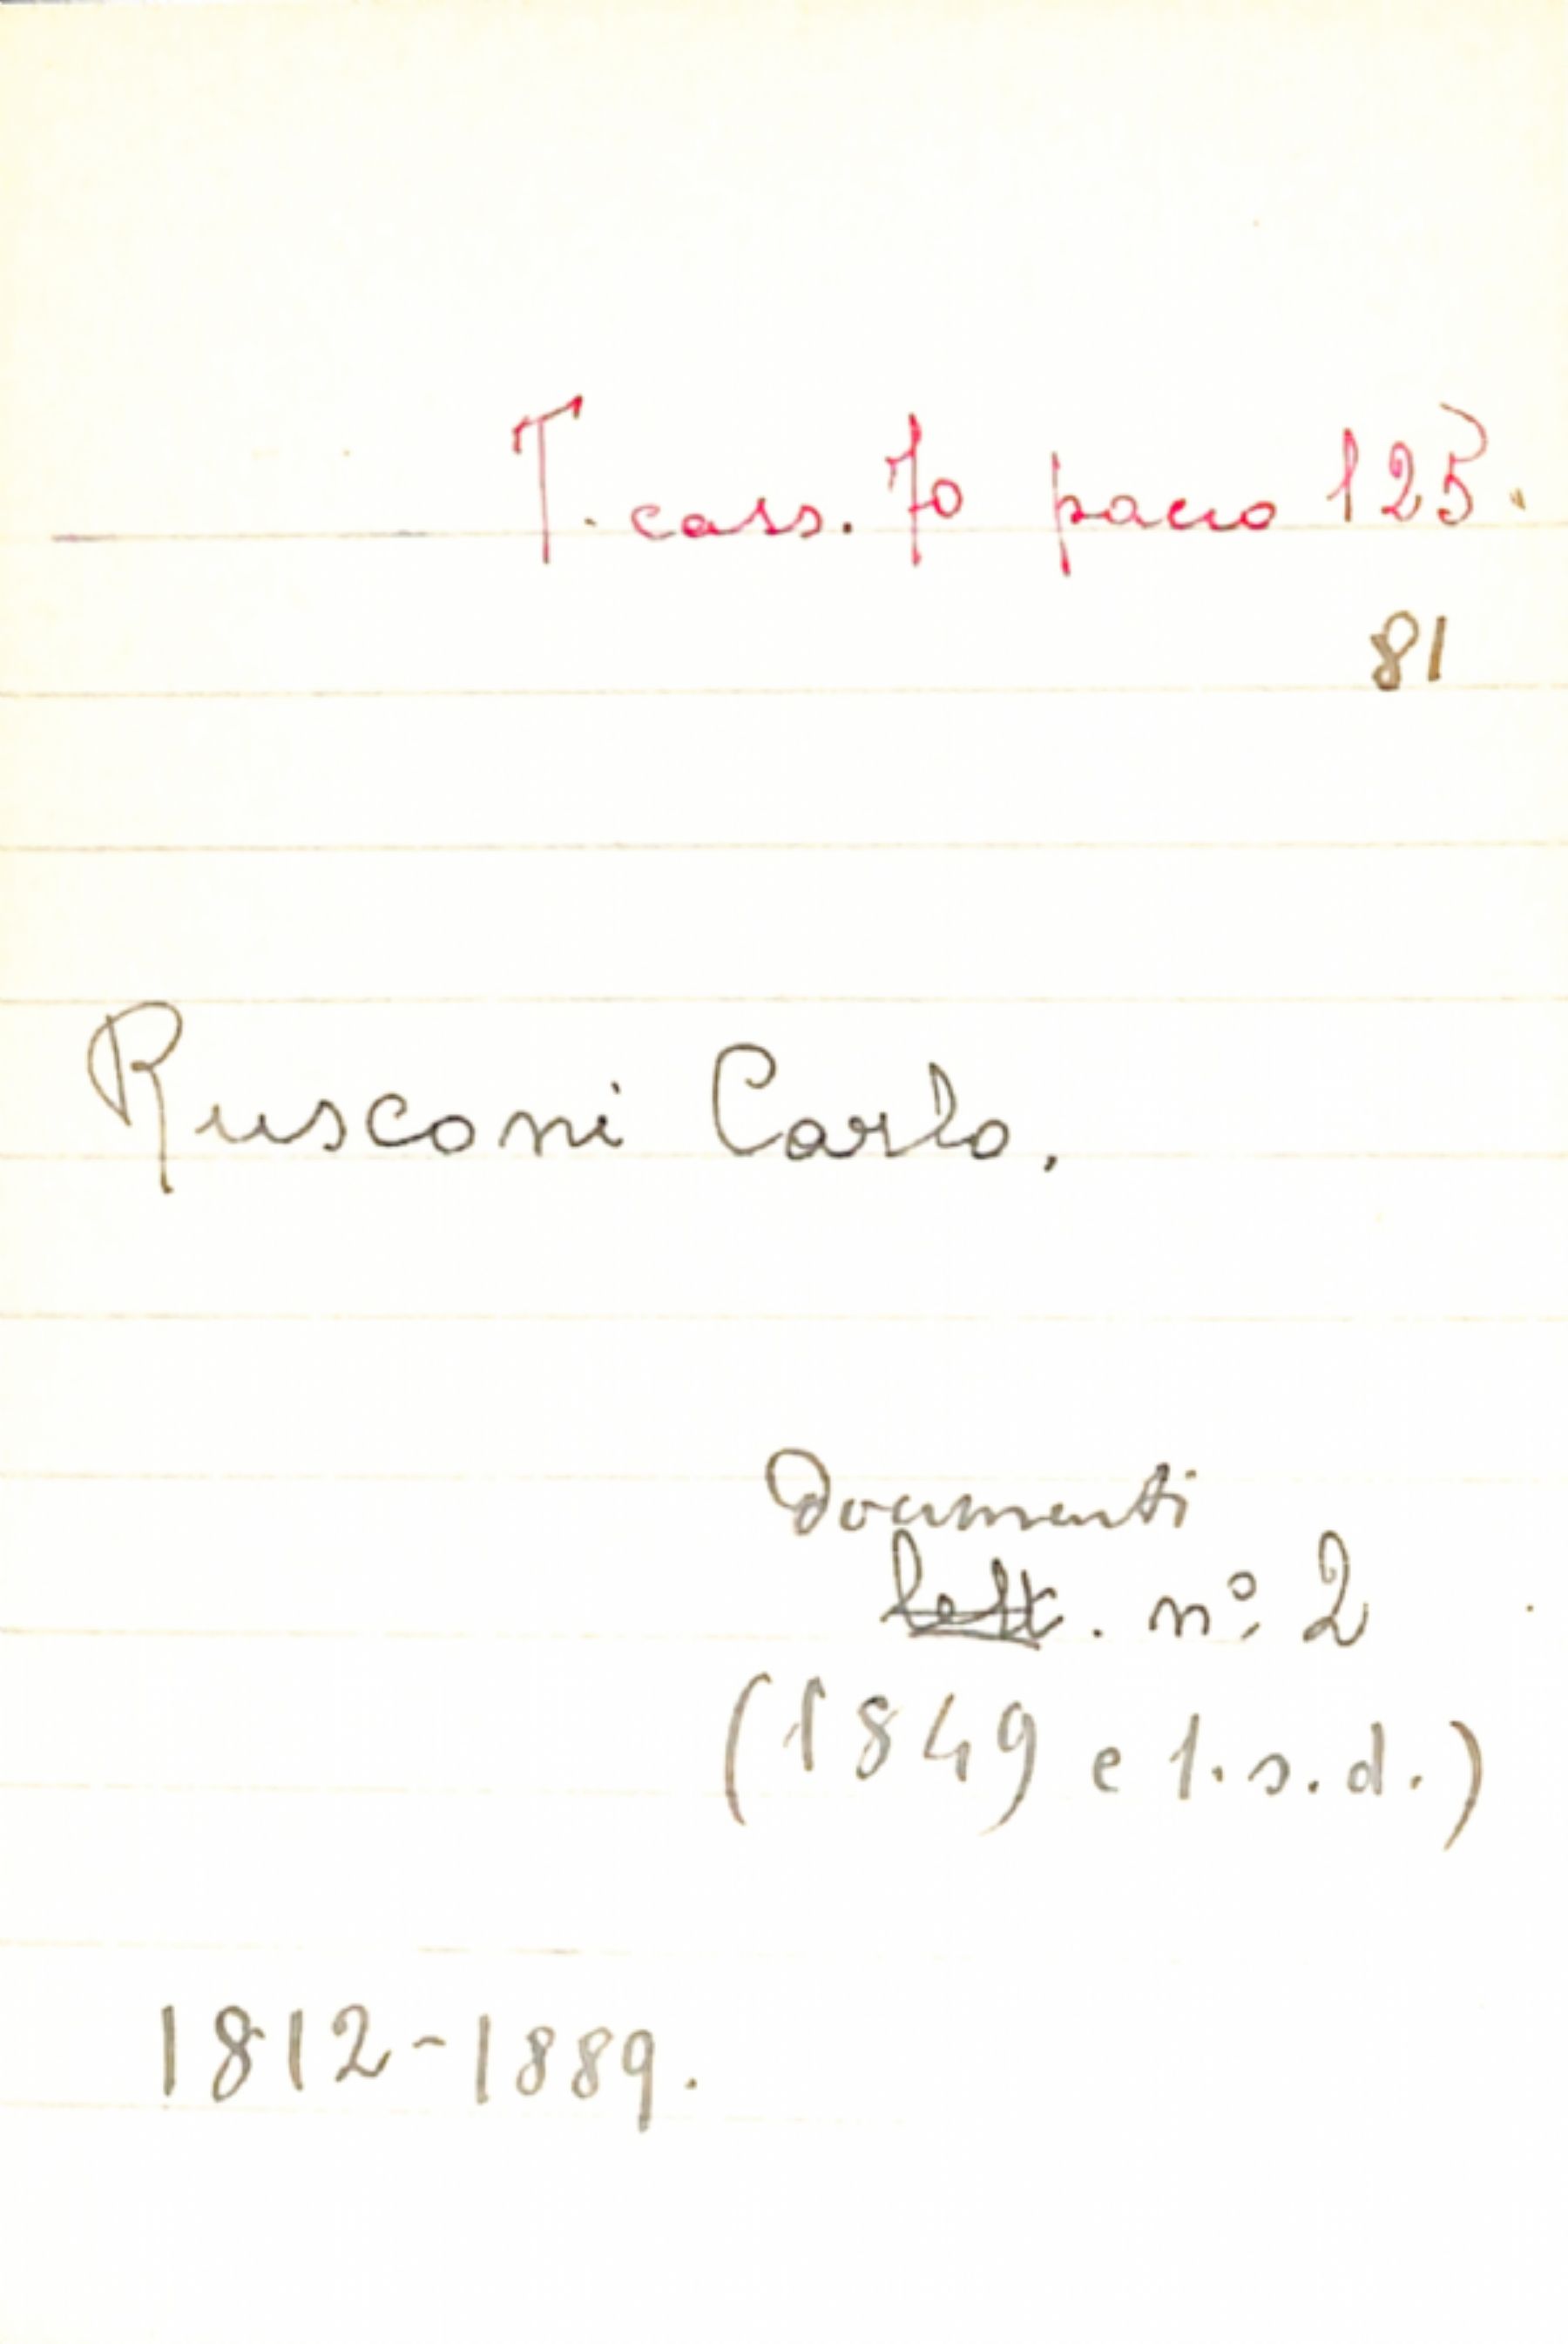 T. cass. 70 pacco 125.
81
Rusconi Carlo.
Documenti
lett. n° 2
(1849 e 1. s. d.)
1812-1889.